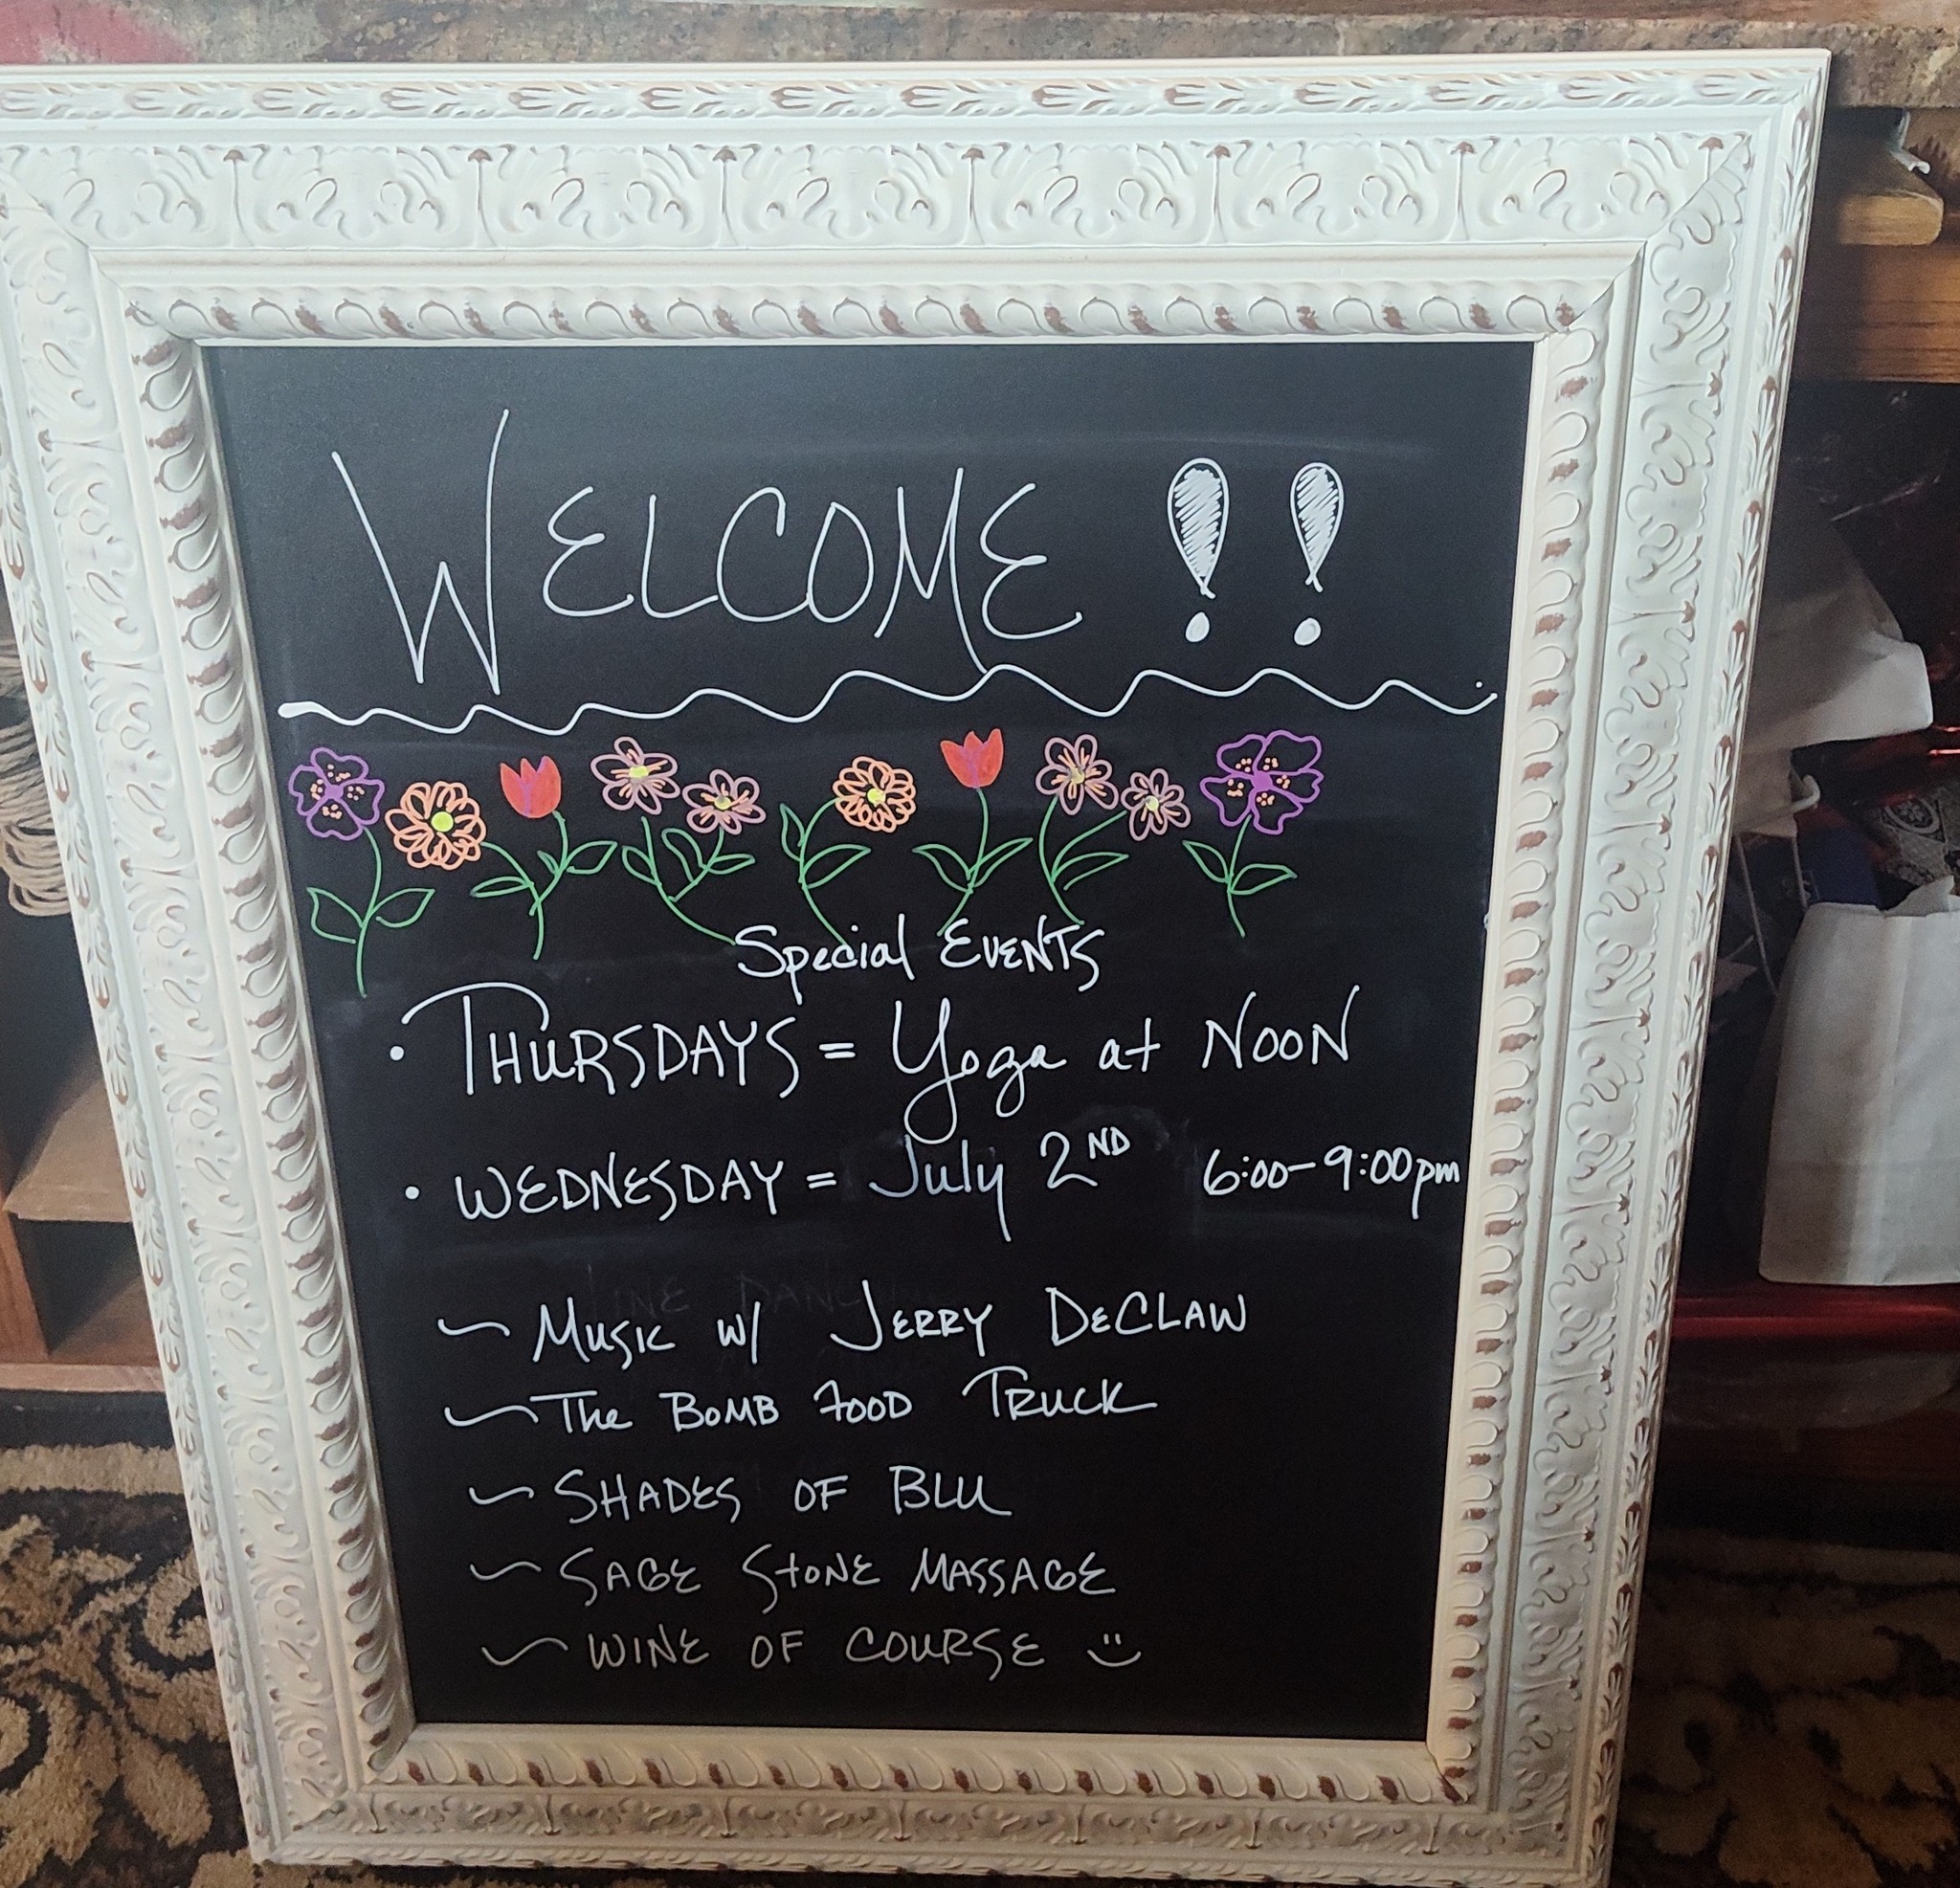 WELCOME !!
Special EVENTS
• THURSDAYS = Yoga at NOON
• WEDNESDAY = July 2ND 6:00-9:00pm
~ MUSIC W/ JERRY DECLAW
~ The BOMB FOOD TRUCK
~ SHADES OF BLU
~ SAGE STONE MASSAGE
~ WINE OF COURSE :)